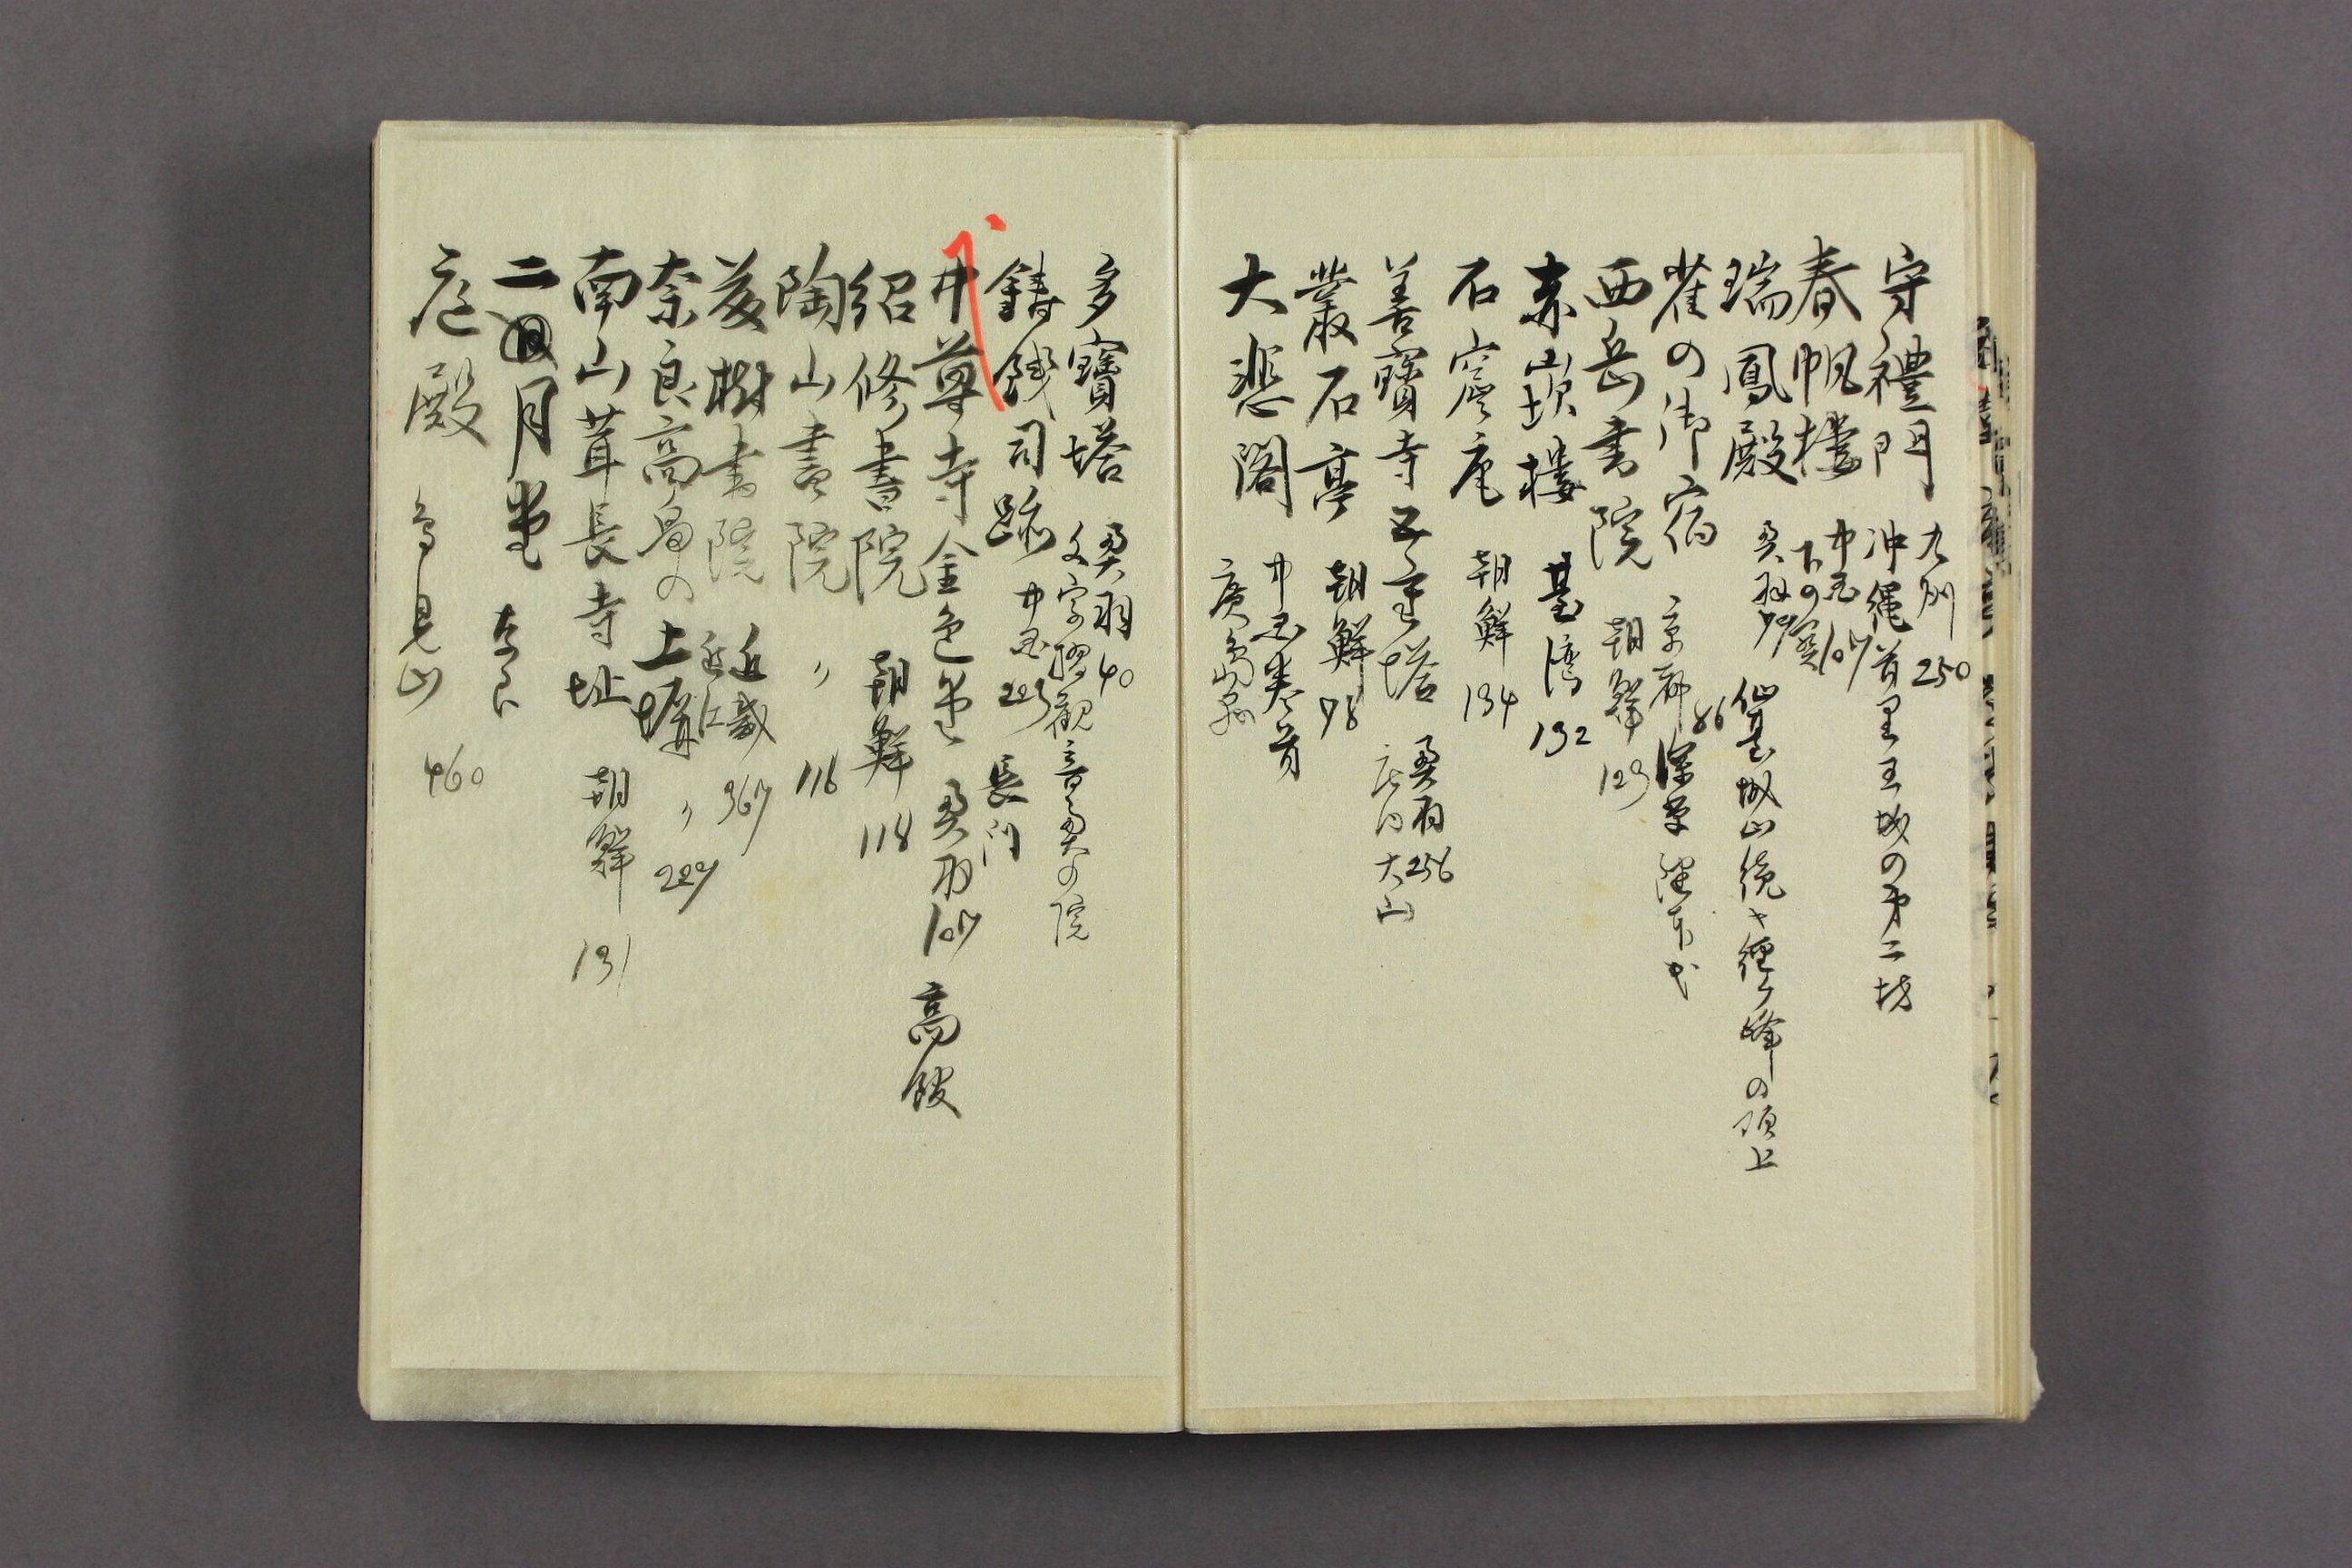 守禮門 九州 250
沖縄首里王城の第二坊
春帆樓 中国 107
下の関
瑞鳳殿 奥羽 99
仙臺城山続き経ヶ峰の頂上
雀の御宿 京都 86
深草
西岳書院 朝鮮 123
赤崁樓 臺湾 132
石窟庵 朝鮮 134
善寶寺五重塔 奥羽 256
大山
叢石亭 朝鮮 98
大悲閣 中国
廣島
多寳塔 奥羽 40
文字摺観音奥の院
鋳銭司跡 中国 223 長門
中尊寺金色堂 奥羽 107
高館
紹修書院 朝鮮 118
陶山書院 〃 116
茂樹書院 近畿 367
近江
奈良高畠の土塀 〃 229
南山茸長寺址 朝鮮 131
二月堂 奈良
庭殿
見山 460